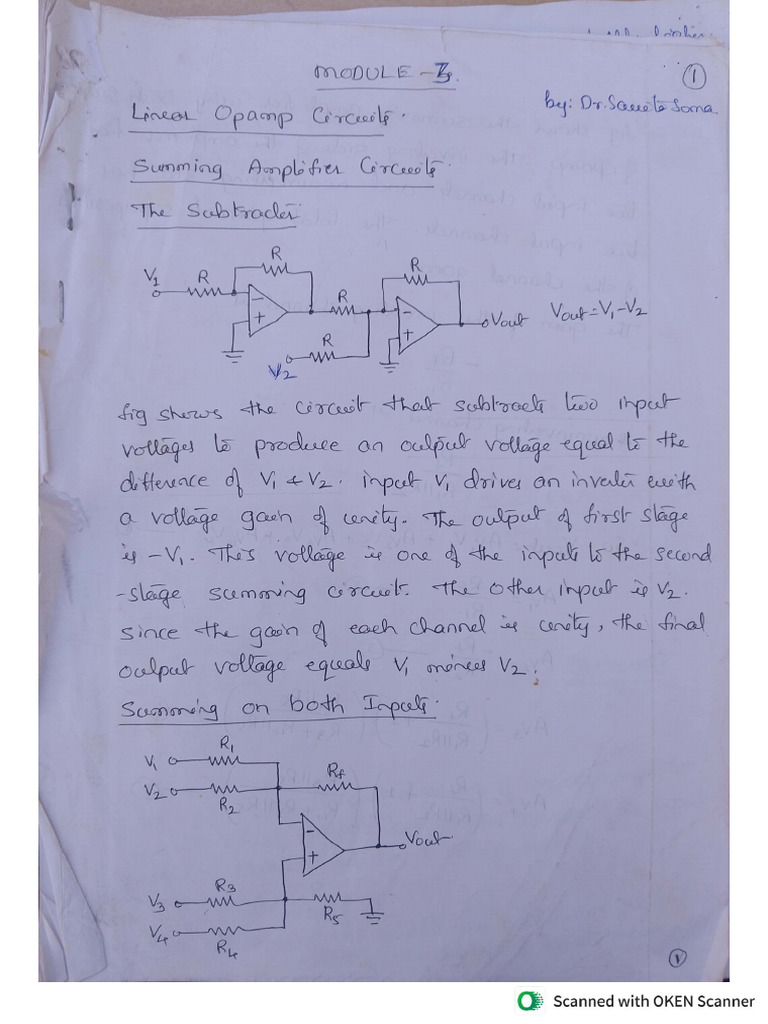 MODULE - 3.
1
by: Dr. Savita Soma
Linear Opamp Circuits.
Summing Amplifier Circuits.
The Subtracter
V1
R
R
R
R
R
V2
Vout
Vout = V1 - V2
fig shows the circuit that subtracts two input
voltages to produce an output voltage equal to the
difference of V1 & V2. input V1 drives an inverter with
a voltage gain of unity. The output of first stage
is -V1. This voltage is one of the inputs to the second
-stage summing circuit. The other input is V2.
since the gain of each channel is unity, the final
output voltage equals V1 minus V2.
Summing on both Inputs.
V1
R1
V2
R2
Rf
Vout
V3
R3
V4
R4
R5
1
Scanned with OKEN Scanner